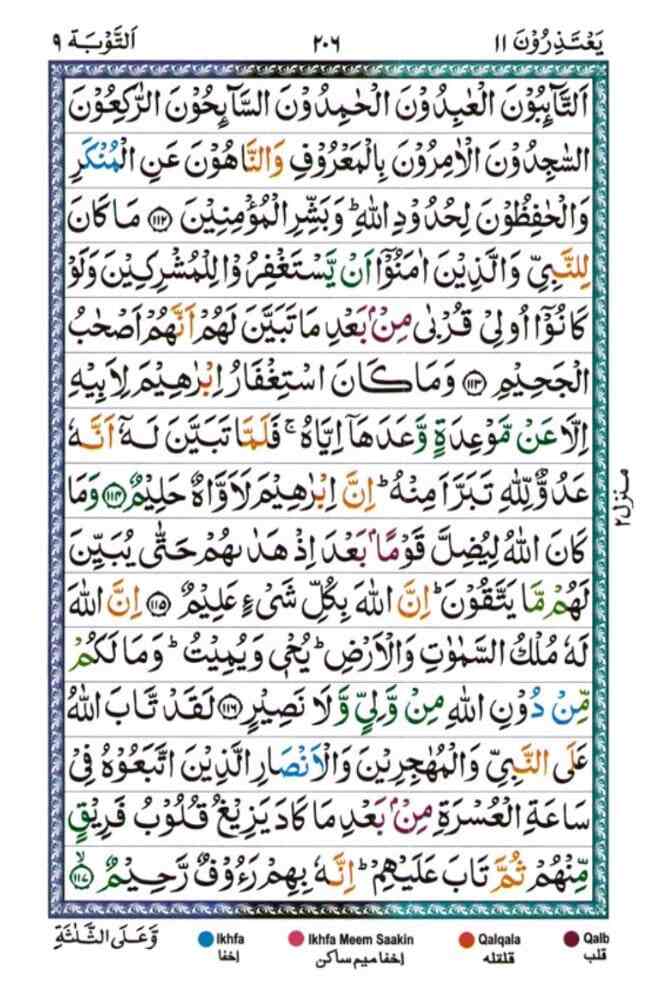 يَعْتَذِرُوْنَ ١١
٢٠٦
اَلتَّوْبَة ٩
اَلتَّآئِبُوْنَ الْعٰبِدُوْنَ الْحٰمِدُوْنَ السَّآئِحُوْنَ الرّٰكِعُوْنَ
السّٰجِدُوْنَ الْاٰمِرُوْنَ بِالْمَعْرُوْفِ وَالنَّاهُوْنَ عَنِ الْمُنْكَرِ
وَالْحٰفِظُوْنَ لِحُدُوْدِ اللّٰهِ ؕ وَبَشِّرِ الْمُؤْمِنِيْنَ ﴿۱۱۲﴾ مَا كَانَ
لِلنَّبِىِّ وَالَّذِيْنَ اٰمَنُوْۤا اَنْ يَّسْتَغْفِرُوْا لِلْمُشْرِكِيْنَ وَلَوْ
كَانُوْۤا اُولِىْ قُرْبٰى مِنْۢ بَعْدِ مَا تَبَيَّنَ لَهُمْ اَنَّهُمْ اَصْحٰبُ
الْجَحِيْمِ ﴿۱۱۳﴾ وَمَا كَانَ اسْتِغْفَارُ اِبْرٰهِيْمَ لِاَبِيْهِ
اِلَّا عَنْ مَّوْعِدَةٍ وَّعَدَهَاۤ اِيَّاهُ ۚ فَلَمَّا تَبَيَّنَ لَهٗۤ اَنَّهٗ
عَدُوٌّ لِّلّٰهِ تَبَرَّاَ مِنْهُ ؕ اِنَّ اِبْرٰهِيْمَ لَاَوَّاهٌ حَلِيْمٌ ﴿۱۱۴﴾ وَمَا
كَانَ اللّٰهُ لِيُضِلَّ قَوْمًاۢ بَعْدَ اِذْ هَدٰىهُمْ حَتّٰى يُبَيِّنَ
لَهُمْ مَّا يَتَّقُوْنَ ؕ اِنَّ اللّٰهَ بِكُلِّ شَىْءٍ عَلِيْمٌ ﴿۱۱۵﴾ اِنَّ اللّٰهَ
لَهٗ مُلْكُ السَّمٰوٰتِ وَالْاَرْضِ ؕ يُحْىٖ وَيُمِيْتُ ؕ وَمَا لَكُمْ
مِّنْ دُوْنِ اللّٰهِ مِنْ وَّلِىٍّ وَّلَا نَصِيْرٍ ﴿۱۱۶﴾ لَقَدْ تَّابَ اللّٰهُ
عَلَى النَّبِىِّ وَالْمُهٰجِرِيْنَ وَالْاَنْصَارِ الَّذِيْنَ اتَّبَعُوْهُ فِىْ
سَاعَةِ الْعُسْرَةِ مِنْۢ بَعْدِ مَا كَادَ يَزِيْغُ قُلُوْبُ فَرِيْقٍ
مِّنْهُمْ ثُمَّ تَابَ عَلَيْهِمْ ؕ اِنَّهٗ بِهِمْ رَءُوْفٌ رَّحِيْمٌ ﴿۱۱۷﴾ۙ
منزل ٢
وَّعَلَى الثَّلٰثَةِ
Ikhfa
إخفا
Ikhfa Meem Saakin
إخفا ميم ساكن
Qalqala
قلقله
Qalb
قلب